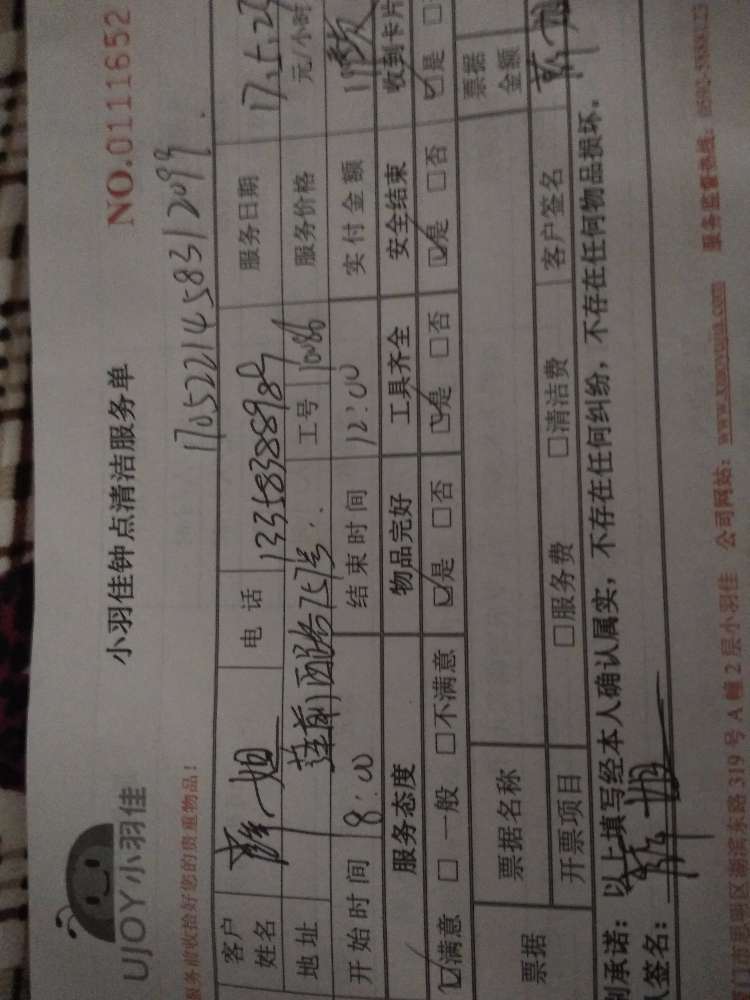 UJOY小羽佳
小羽佳钟点清洁服务单
NO.0111652
服务前收拾好您的贵重物品！
1705221458312099
客户姓名
电话 13358388989
服务日期 17.5.2
地址 莲前西路757号
工号 10086
服务价格 元/小时
开始时间 8:00 结束时间 12:00 实付金额
服务态度 物品完好 工具齐全 安全结束 收到卡片
☑满意 □一般 □不满意 ☑是 □否 ☑是 □否 ☑是 □否 ☑是 □
票据 票据名称 票据金额
开票项目 □服务费 □清洁费 客户签名
别承诺：以上填写经本人确认属实，不存在任何纠纷，不存在任何物品损坏。
签名：
门市思明区湖滨东路319号A幢2层小羽佳 公司网站：www.xiaoyujia.com 服务监督热线：0592-5888123